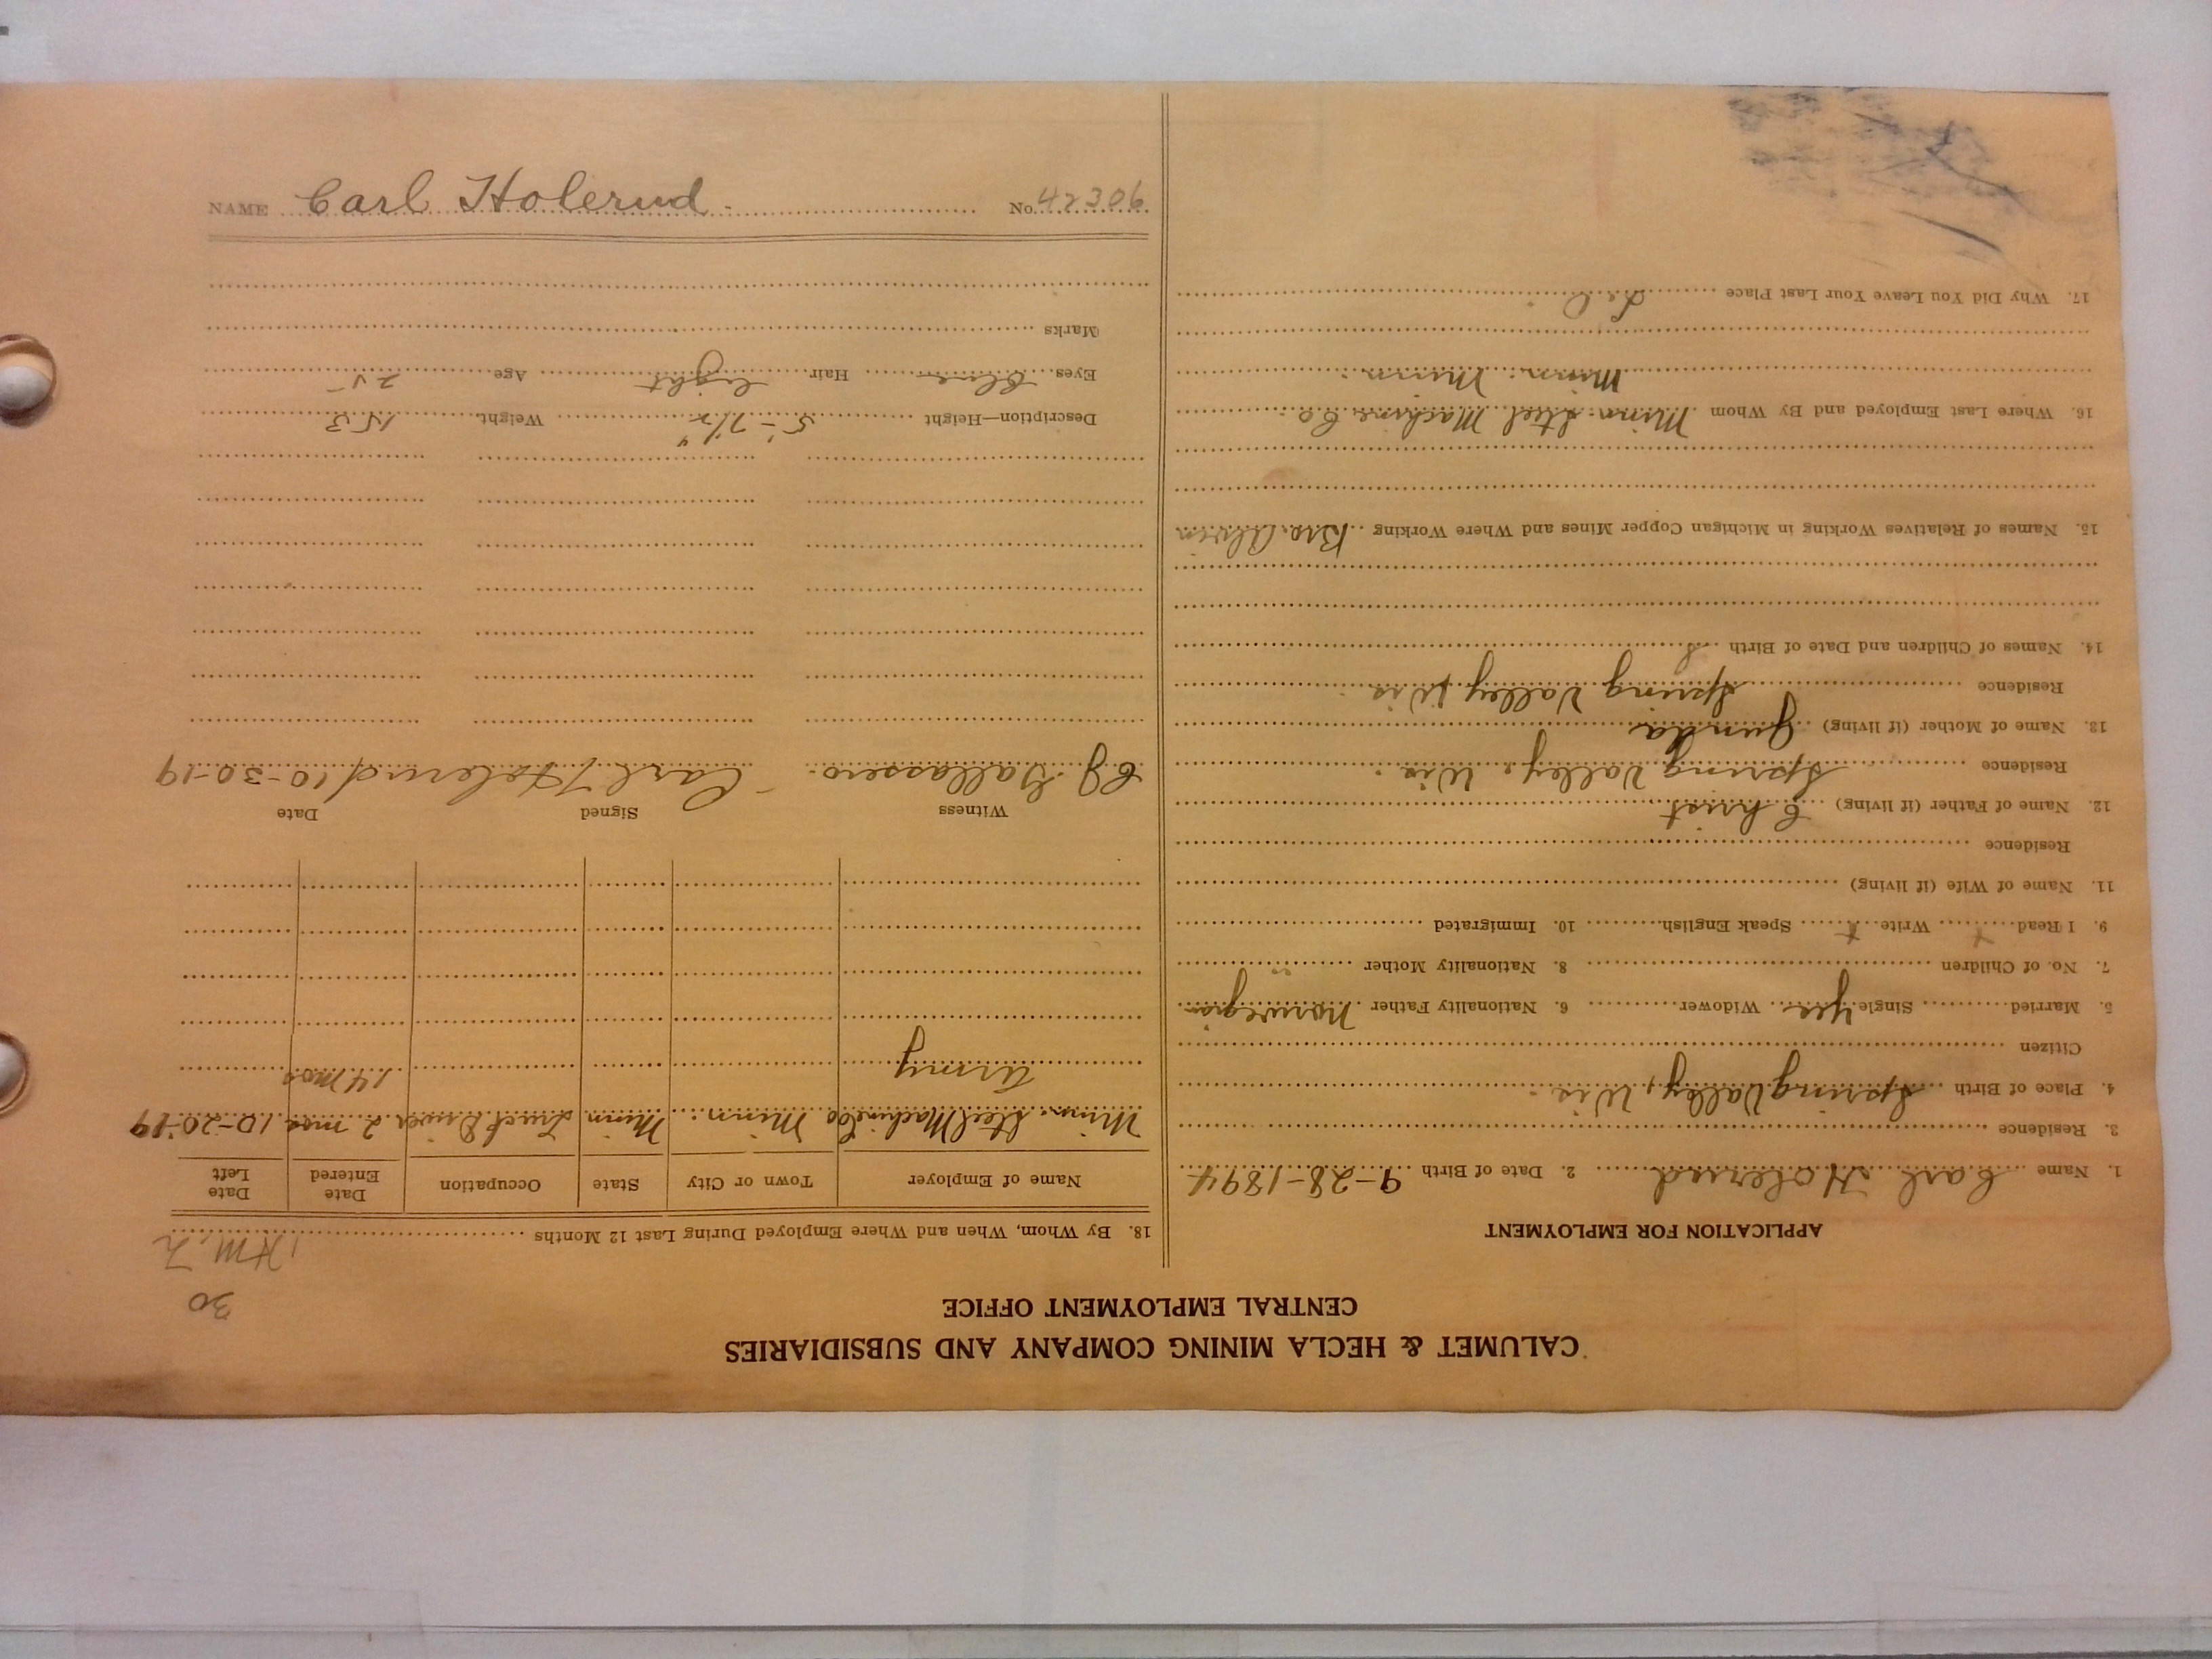 CALUMET & HECLA MINING COMPANY AND SUBSIDIARIES
CENTRAL EMPLOYMENT OFFICE
30
APPLICATION FOR EMPLOYMENT
1. Name Carl Holerud 2. Date of Birth 9-28-1894
3. Residence
4. Place of Birth Spring Valley, Wis.
Citizen
5. Married Single Yes Widower 6. Nationality Father Norwegian
7. No. of Children 8. Nationality Mother "
9. I Read x Write x Speak English 10. Immigrated
11. Name of Wife (if living)
Residence
12. Name of Father (if living) Christ
Residence Spring Valley, Wis.
13. Name of Mother (if living) Gunda
Residence Spring Valley Wis.
14. Names of Children and Date of Birth
15. Names of Relatives Working in Michigan Copper Mines and Where Working Bro. Alvin
16. Where Last Employed and By Whom Minn. Steel Machine Co.
Minn. Minn.
17. Why Did You Leave Your Last Place
18. By Whom, When and Where Employed During Last 12 Months
Name of Employer Town or City State Occupation Date Entered Date Left
Minn. Steel Machine Co Minn. Minn Truck Driver 2 mos 10-20-19
Army 14 mos
Witness Signed Date
Carl Holerud 10-30-19
Description—Height 5'-7 1/2" Weight 153
Eyes Blue Hair light Age 25
Marks
NAME Carl Holerud. No. 42306